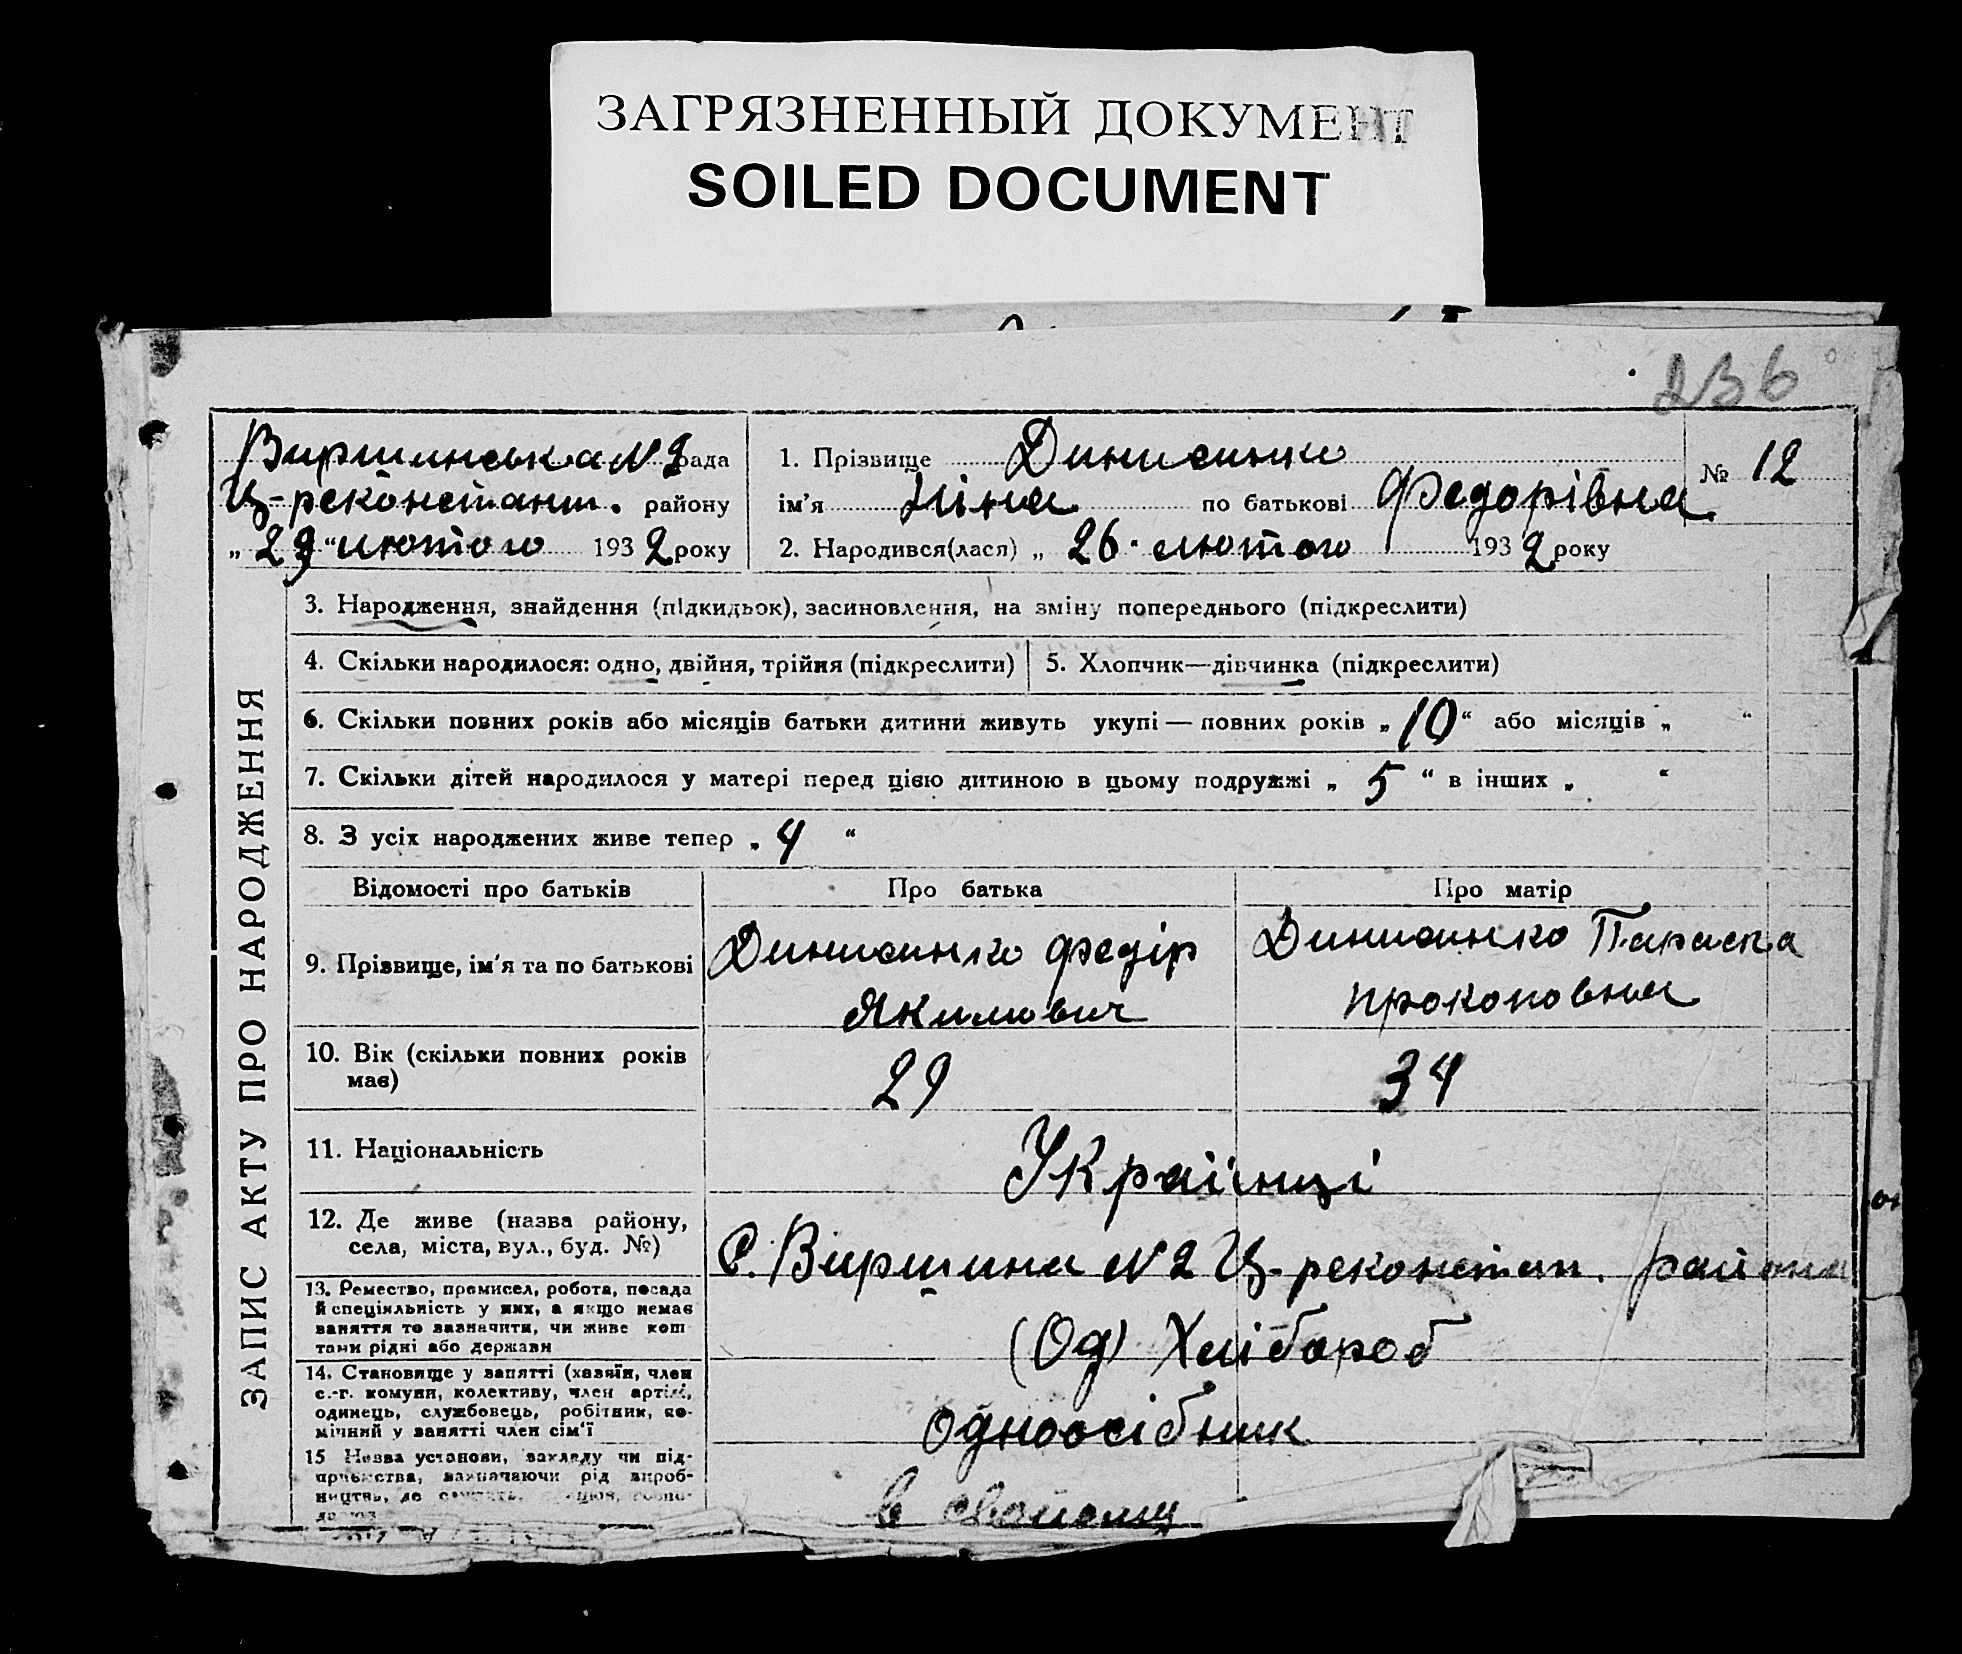 ЗАГРЯЗНЕННЫЙ ДОКУМЕНТ
SOILED DOCUMENT
236
Виршинська N 2 рада
Ц-реконстант. району
„ 29 “ лютого 1932 року
1. Прізвище Динисинко
ім'я Ніна по батькові Федорівна
№ 12
2. Народився(лася) „ 26 . лютого 1932 року
ЗАПИС АКТУ ПРО НАРОДЖЕННЯ
3. Народження, знайдення (підкидьок), засиновлення, на зміну попереднього (підкреслити)
4. Скільки народилося: одно, двійня, трійня (підкреслити)
5. Хлопчик—дівчинка (підкреслити)
6. Скільки повних років або місяців батьки дитини живуть укупі — повних років „ 10 “ або місяців „ “
7. Скільки дітей народилося у матері перед цією дитиною в цьому подружжі „ 5 “ в інших „ “
8. З усіх народжених живе тепер „ 4 “
Відомості про батьків Про батька Про матір
9. Прізвище, ім'я та по батькові
Динисинко Федір
Якимович
Динисинко Параска
Прокоповна
10. Вік (скільки повних років
має)
29 34
11. Національність
Українці
12. Де живе (назва району,
села, міста, вул., буд. №)
С. Виршина N 2 Ц-реконстан. района
13. Ремество, промисел, робота, посада
й спеціяльність у них, а якщо немає
заняття то зазначити, чи живе кош
тами рідні або держави
(Од) Хлібороб
14. Становище у занятті (хазяїн, член
с.-г. комуни, колективу, член артілі,
одинець, службовець, робітник, по-
мічний у занятті член сім'ї
одноосібник
15 Назва установи, закладу чи під-
приємства, зазначаючи рід вироб-
ництва, де
в свойому